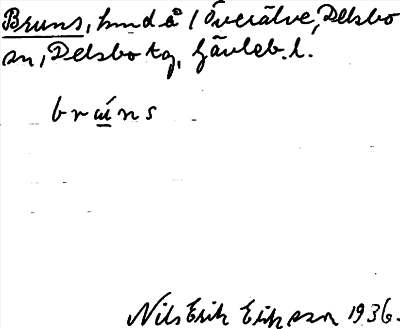 Bruns, hmd å 1 Överälve, Delsbo
sn, Delsbo tg, Gävleb. l.
brú̱ns
Nils Erik Eriksson 1936.